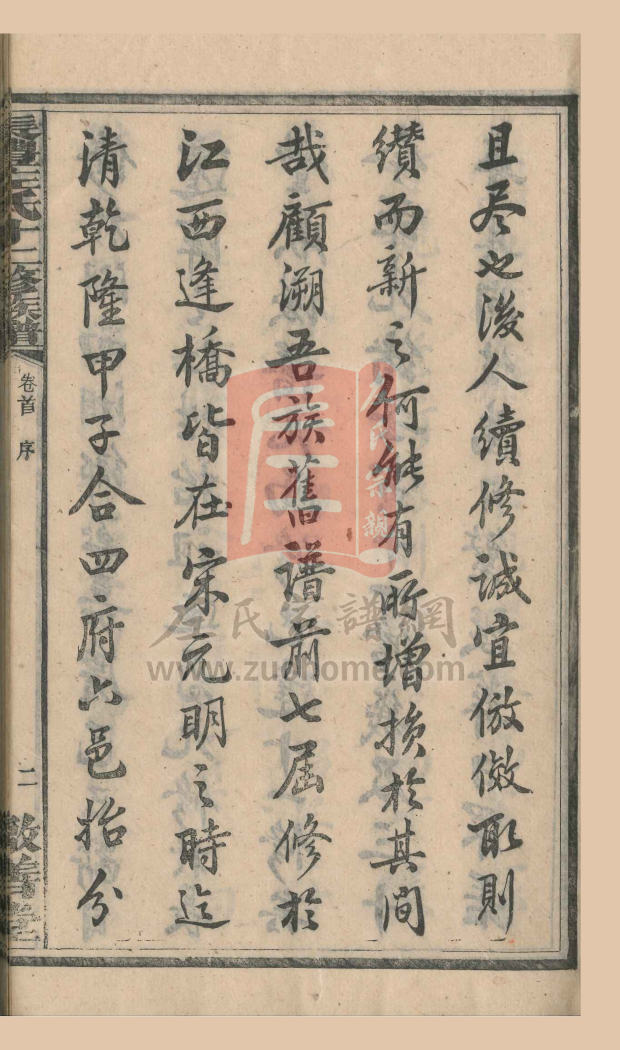 且尽也后人續修誠宜倣傚取則
纘而新之何能有所增損於其间
哉顧溯吾族舊譜前七届修於
江西逢橋皆在宋元明之時迄
清乾隆甲子合四府六邑抬分
左氏十二修族譜
卷首 序
二
敦善堂
左氏宗譜網
www.zuohome.com